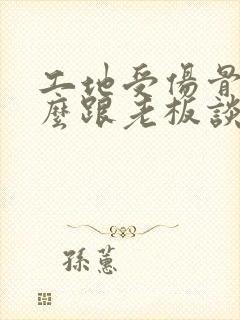 工地受傷骨
麼跟老板談
孫蕙